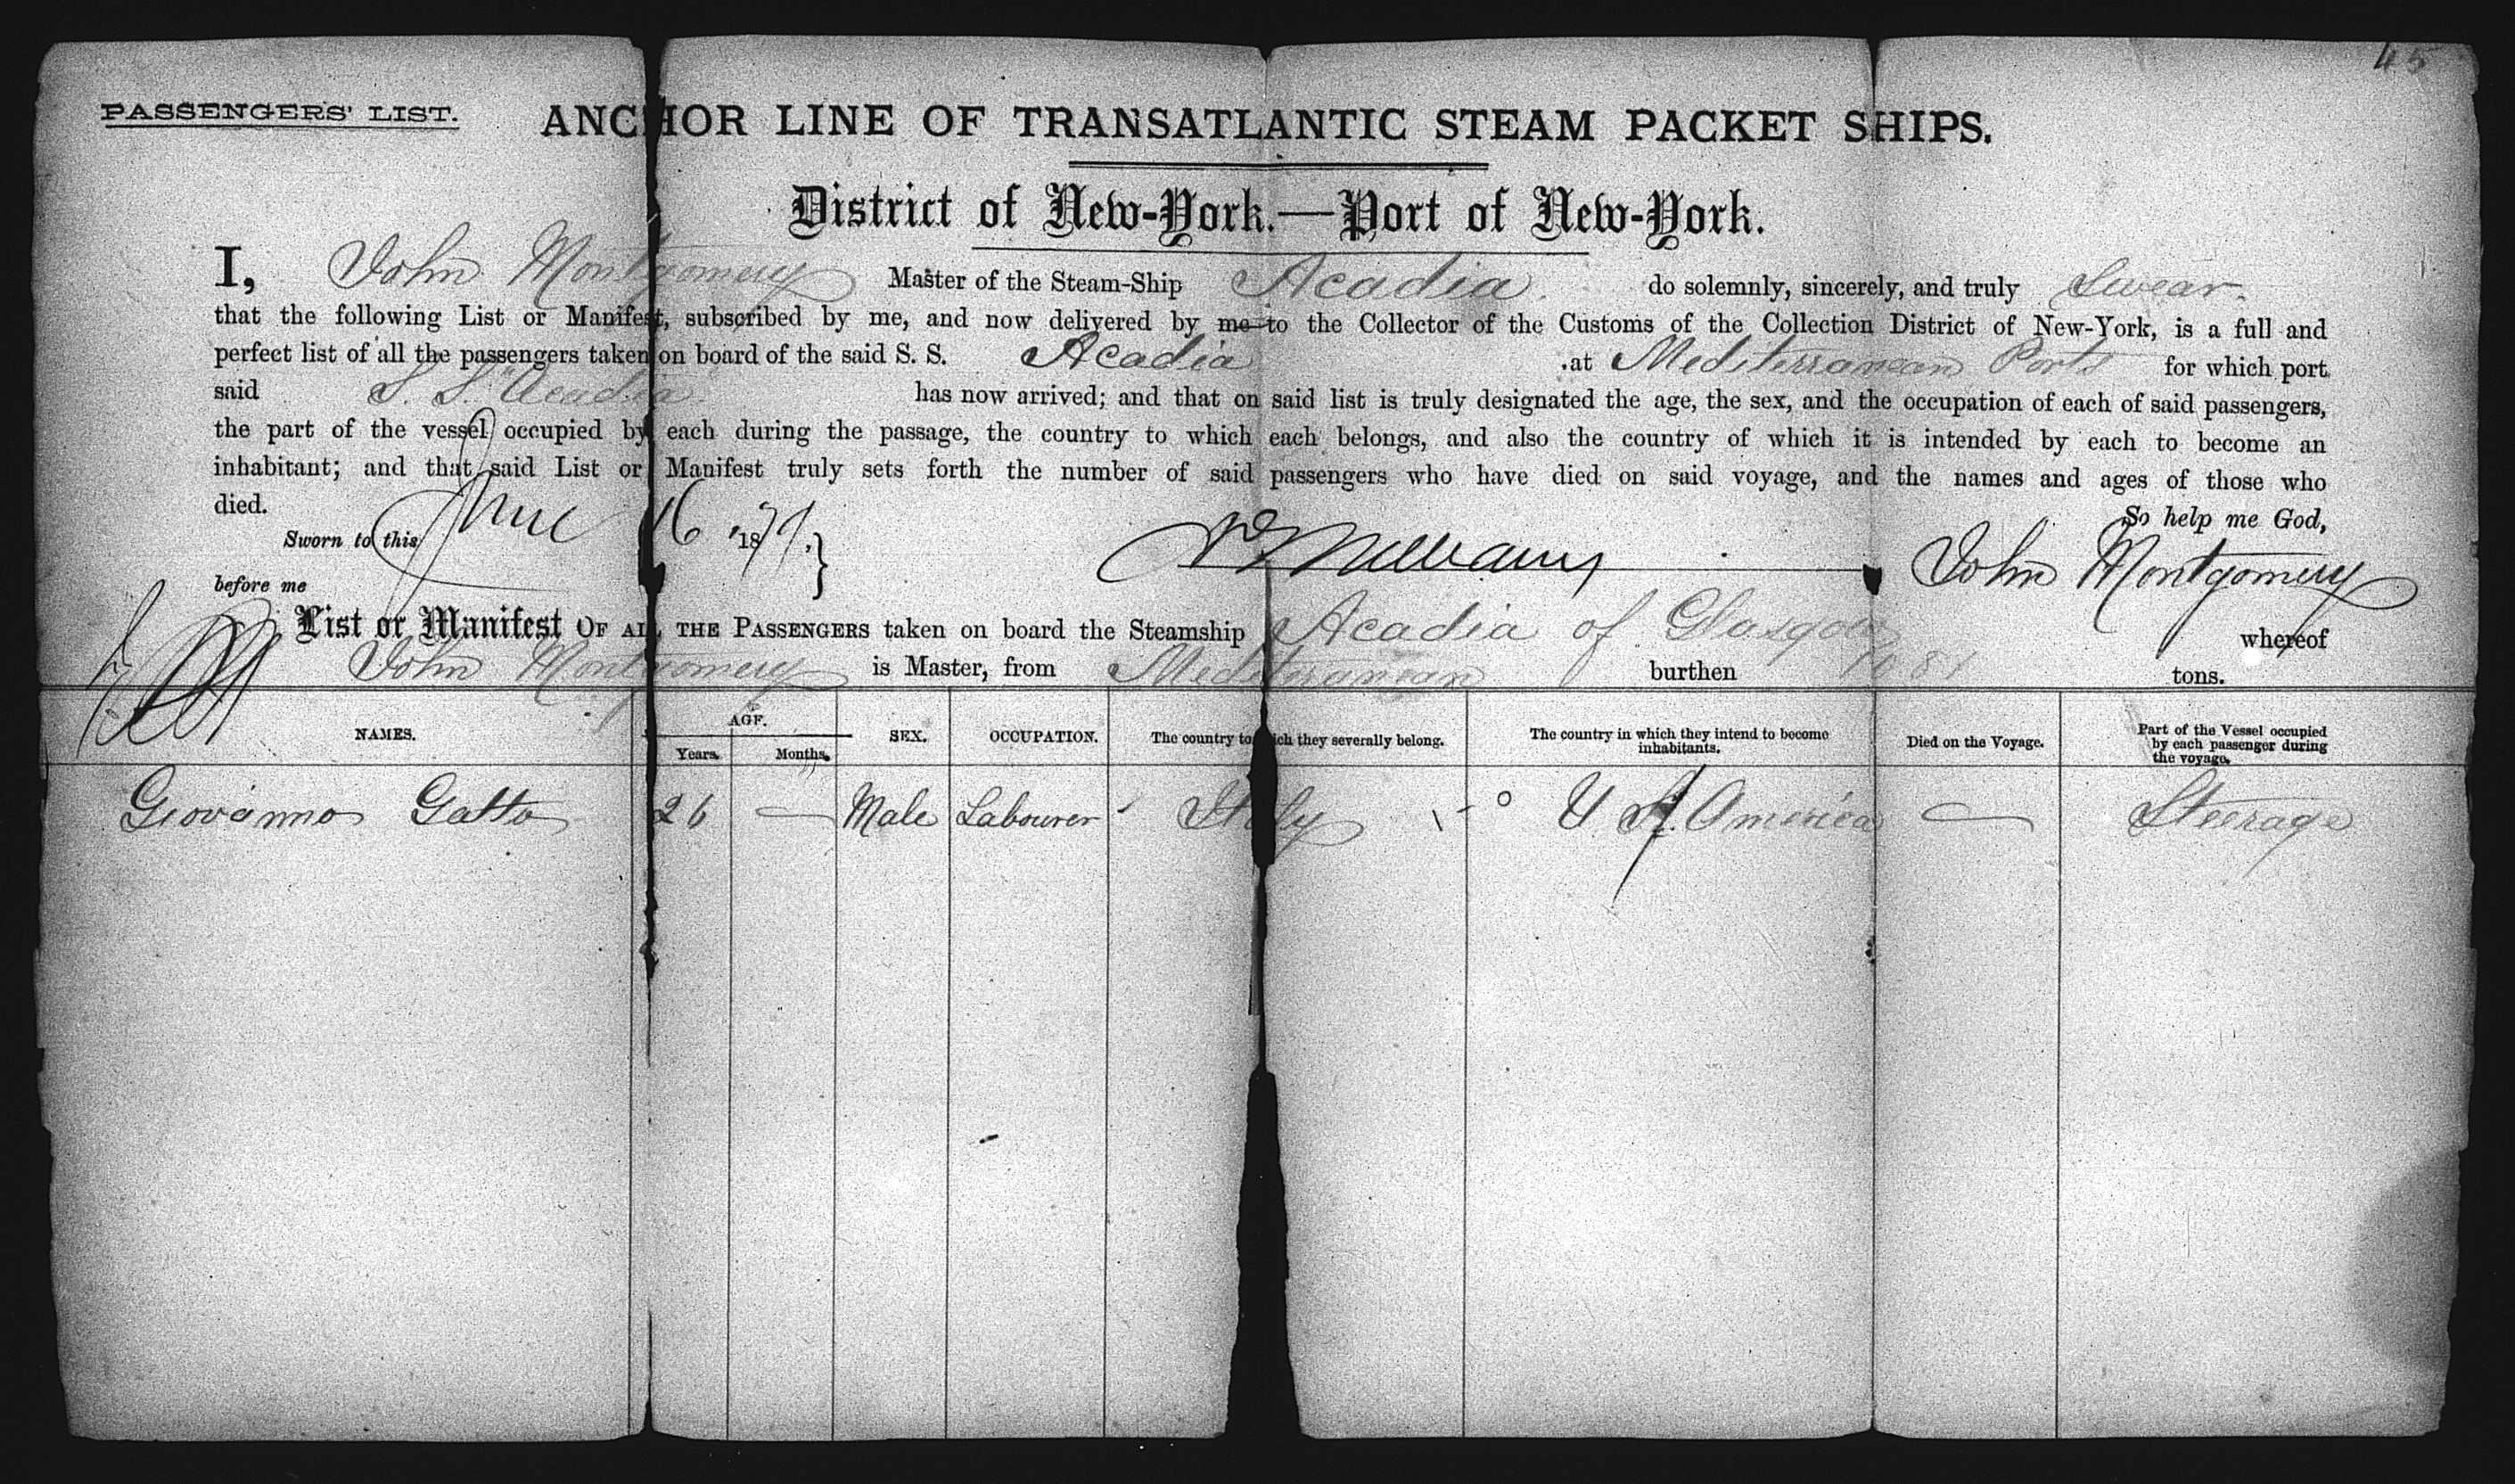 45
PASSENGERS' LIST. ANCHOR LINE OF TRANSATLANTIC STEAM PACKET SHIPS.
District of New-York.—Port of New-York.
I, John Montgomery Master of the Steam-Ship Acadia. do solemnly, sincerely, and truly Swear.
that the following List or Manifest, subscribed by me, and now delivered by me to the Collector of the Customs of the Collection District of New-York, is a full and
perfect list of all the passengers taken on board of the said S. S. Acadia at Mediterranean Ports for which port
said S. S. "Acadia has now arrived; and that on said list is truly designated the age, the sex, and the occupation of each of said passengers,
the part of the vessel occupied by each during the passage, the country to which each belongs, and also the country of which it is intended by each to become an
inhabitant; and that said List or Manifest truly sets forth the number of said passengers who have died on said voyage, and the names and ages of those who
died. So help me God,
Sworn to this June 16 1877. John Montgomery
before me
List or Manifest OF ALL THE PASSENGERS taken on board the Steamship Acadia of Glasgow whereof
John Montgomery is Master, from Mediterranean burthen 1081 tons.
NAMES. AGE. Years. Months. SEX. OCCUPATION. The country to which they severally belong. The country in which they intend to become inhabitants. Died on the Voyage. Part of the Vessel occupied by each passenger during the voyage.
Giovanno Gatto 26 — Male Labourer Italy U S. America — Steerage